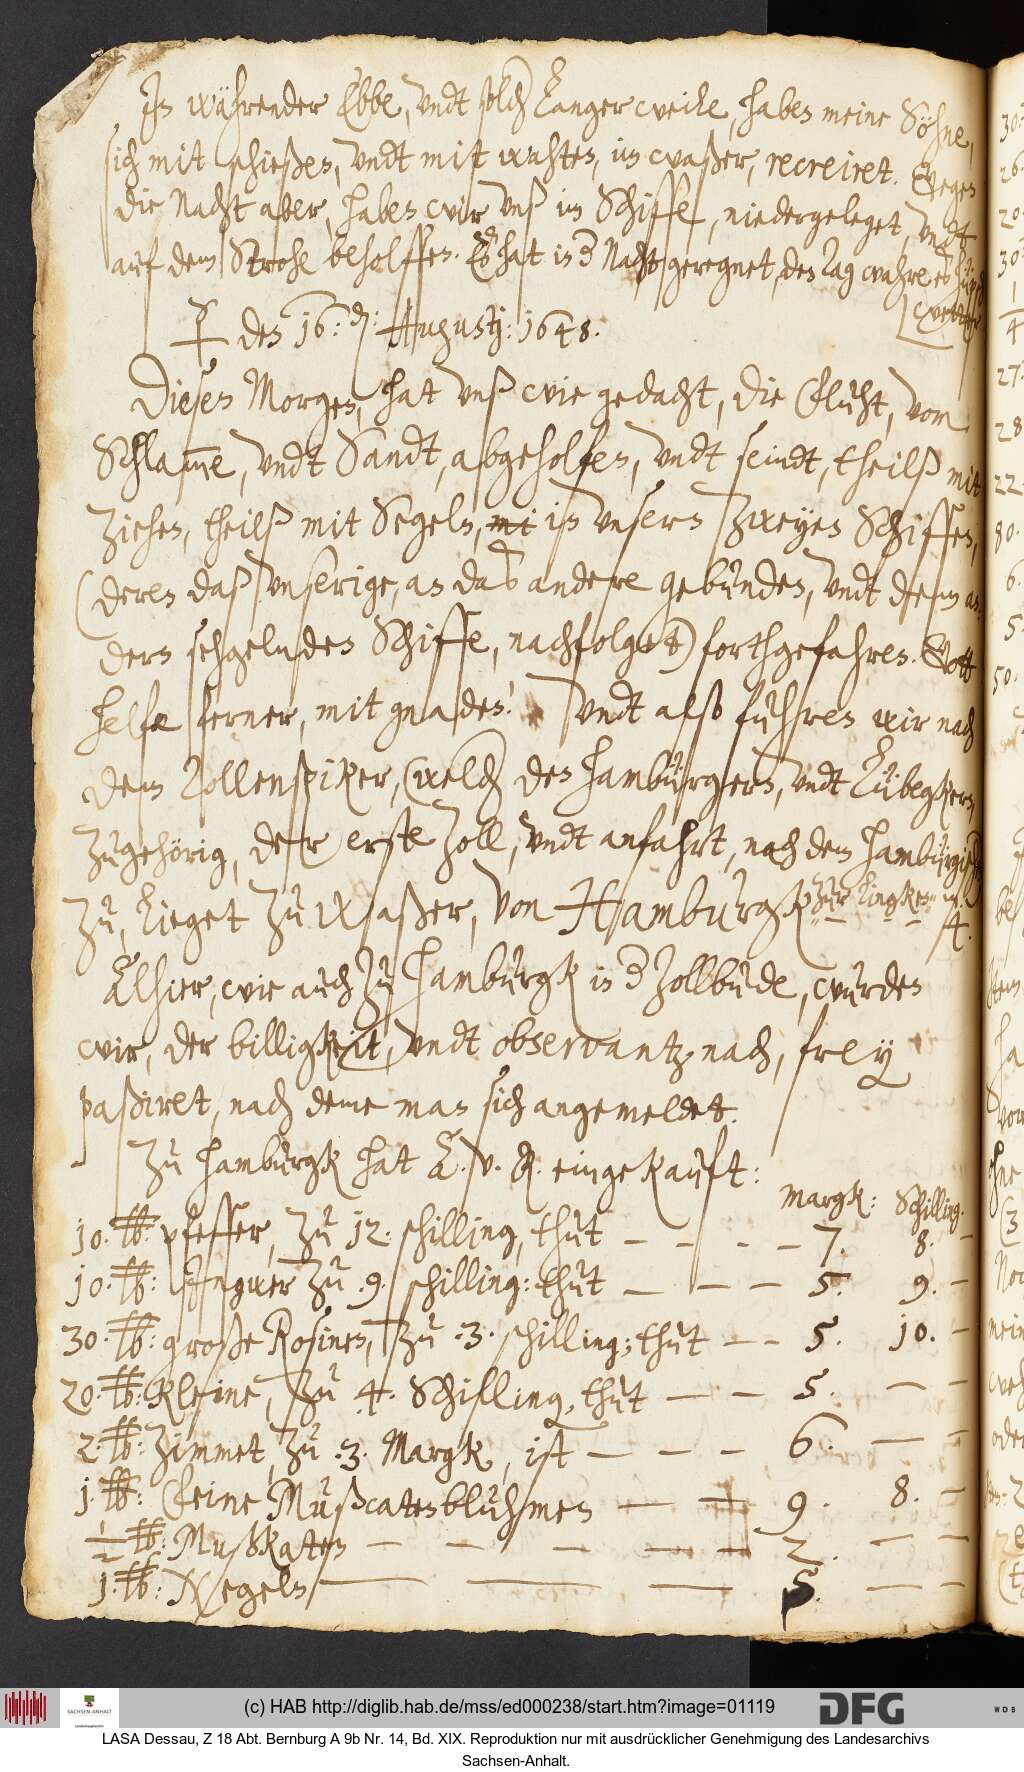 In währender Ebbe, undt solch Langerweile, haben meine Söhne,
sich mit schießen, undt mit wahten, im waßer, recreiret. Gegen
die Nacht aber, haben wir unß im Schiffe, niedergeleget, undt
auf dem Strohe beholffen. Es hat in d Nacht geregnet, den Tag wahre es
wetter
den 16: d: Augustj: 1648.
Diesen Morgen, hat unß wie gedacht, die Fluht, vom
Schlam̅e, undt Sandt, abgeholfen, undt seindt, theilß mit
Ziehen, theilß mit Segeln, mi in unsern Zweyen Schiffen,
(deren daß unserige, an das andere gebunden, undt dem an-
dern sehgelnden Schiffe, nachfolget) forthgefahren. Gott
helfe ferner, mit gnaden! Undt also fuhren wir nach
dem Zollenspiker, (welch den Hamburgern, undt Lübegkern,
zugehörig, der erste Zoll, undt anfahrt, nach dem Hamburgischen
zu, Lieget zu Waßer, von Hamburgk zur Lingken 4.
Alhier, wie auch zu Hamburgk in d Zollbude, wurden
wir, der billigkeit, undt observantz nach, frey
paßiret, nach deme man sich angemeldet.
Zu Hamburgk hat A. v. R. eingekauft:
Margk: Schilling.
10. ℔: pfeffer, zu 12. schilling, thut — — — — 7. 8. —
10. ℔: Ingwer zu .9. schilling: thut — — — 5. 9. —
30. ℔: große Rosinen, zu .3. schilling; thut — — 5. 10. —
20. ℔: Kleine, zu 4. Schilling, thut — — 5. — —
2. ℔: Zimmet, zu .3. Margk, ist — — — 6. — —
1. ℔: Feine Mußcatenbluhmen — — 9. 8. —
½ ℔: Mußkaten — — — — — 2. — —
1. ℔: Negeln — — — 5. — —
(c) HAB http://diglib.hab.de/mss/ed000238/start.htm?image=01119
SACHSEN-ANHALT
DFG
WDB
LASA Dessau, Z 18 Abt. Bernburg A 9b Nr. 14, Bd. XIX. Reproduktion nur mit ausdrücklicher Genehmigung des Landesarchivs
Sachsen-Anhalt.